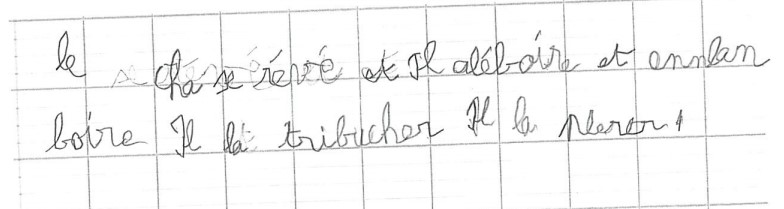 le cha se révé et Il aléboire et ennlan
boire Il la tribucher Il la plerer,